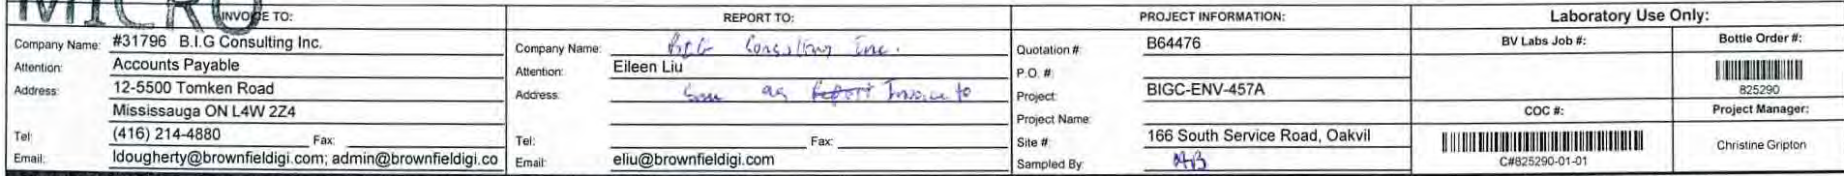 MICRO
INVOICE TO:
Company Name: #31796 B.I.G Consulting Inc.
Attention: Accounts Payable
Address: 12-5500 Tomken Road
Mississauga ON L4W 2Z4
Tel: (416) 214-4880 Fax:
Email: ldougherty@brownfieldigi.com; admin@brownfieldigi.co
REPORT TO:
Company Name: B.I.G Consulting Inc.
Attention: Eileen Liu
Address: Same as Report Invoice to
Tel: Fax:
Email: eliu@brownfieldigi.com
PROJECT INFORMATION:
Quotation #: B64476
P.O. #:
Project: BIGC-ENV-457A
Project Name:
Site #: 166 South Service Road, Oakvil
Sampled By: AB
Laboratory Use Only:
BV Labs Job #: Bottle Order #:
825290
COC #: Project Manager:
C#825290-01-01
Christine Gripton